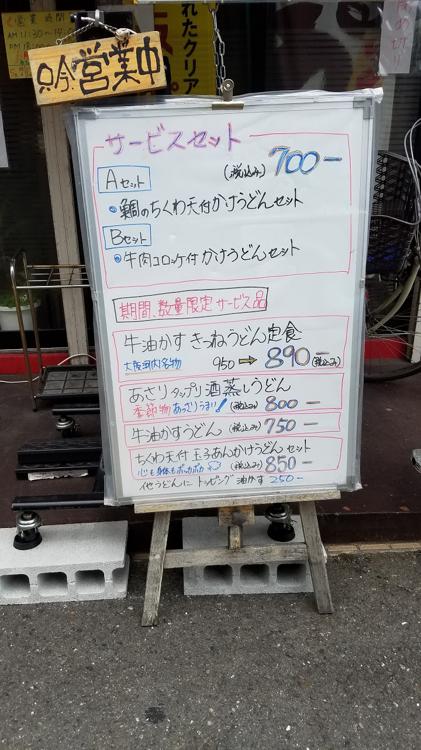 営業時間
AM 11:30~14:
PM 18:
れたクリア
只今営業中
サービスセット
Aセット
(税込み) 700-
・鯛のちくわ天付かけうどんセット
Bセット
・牛肉コロッケ付かけうどんセット
期間、数量限定サービス品
牛油かす きつねうどん定食
大阪河内名物 950 → 890-(税込み)
あさり タップリ 酒蒸しうどん
季節物 あっさりうまい! (税込み) 800-
牛油かすうどん (税込み) 750-
ちくわ天付 玉子あんかけうどん セット
心も身体もポッカポカ (税込み) 850-
他うどんに トッピング 油かす 250-